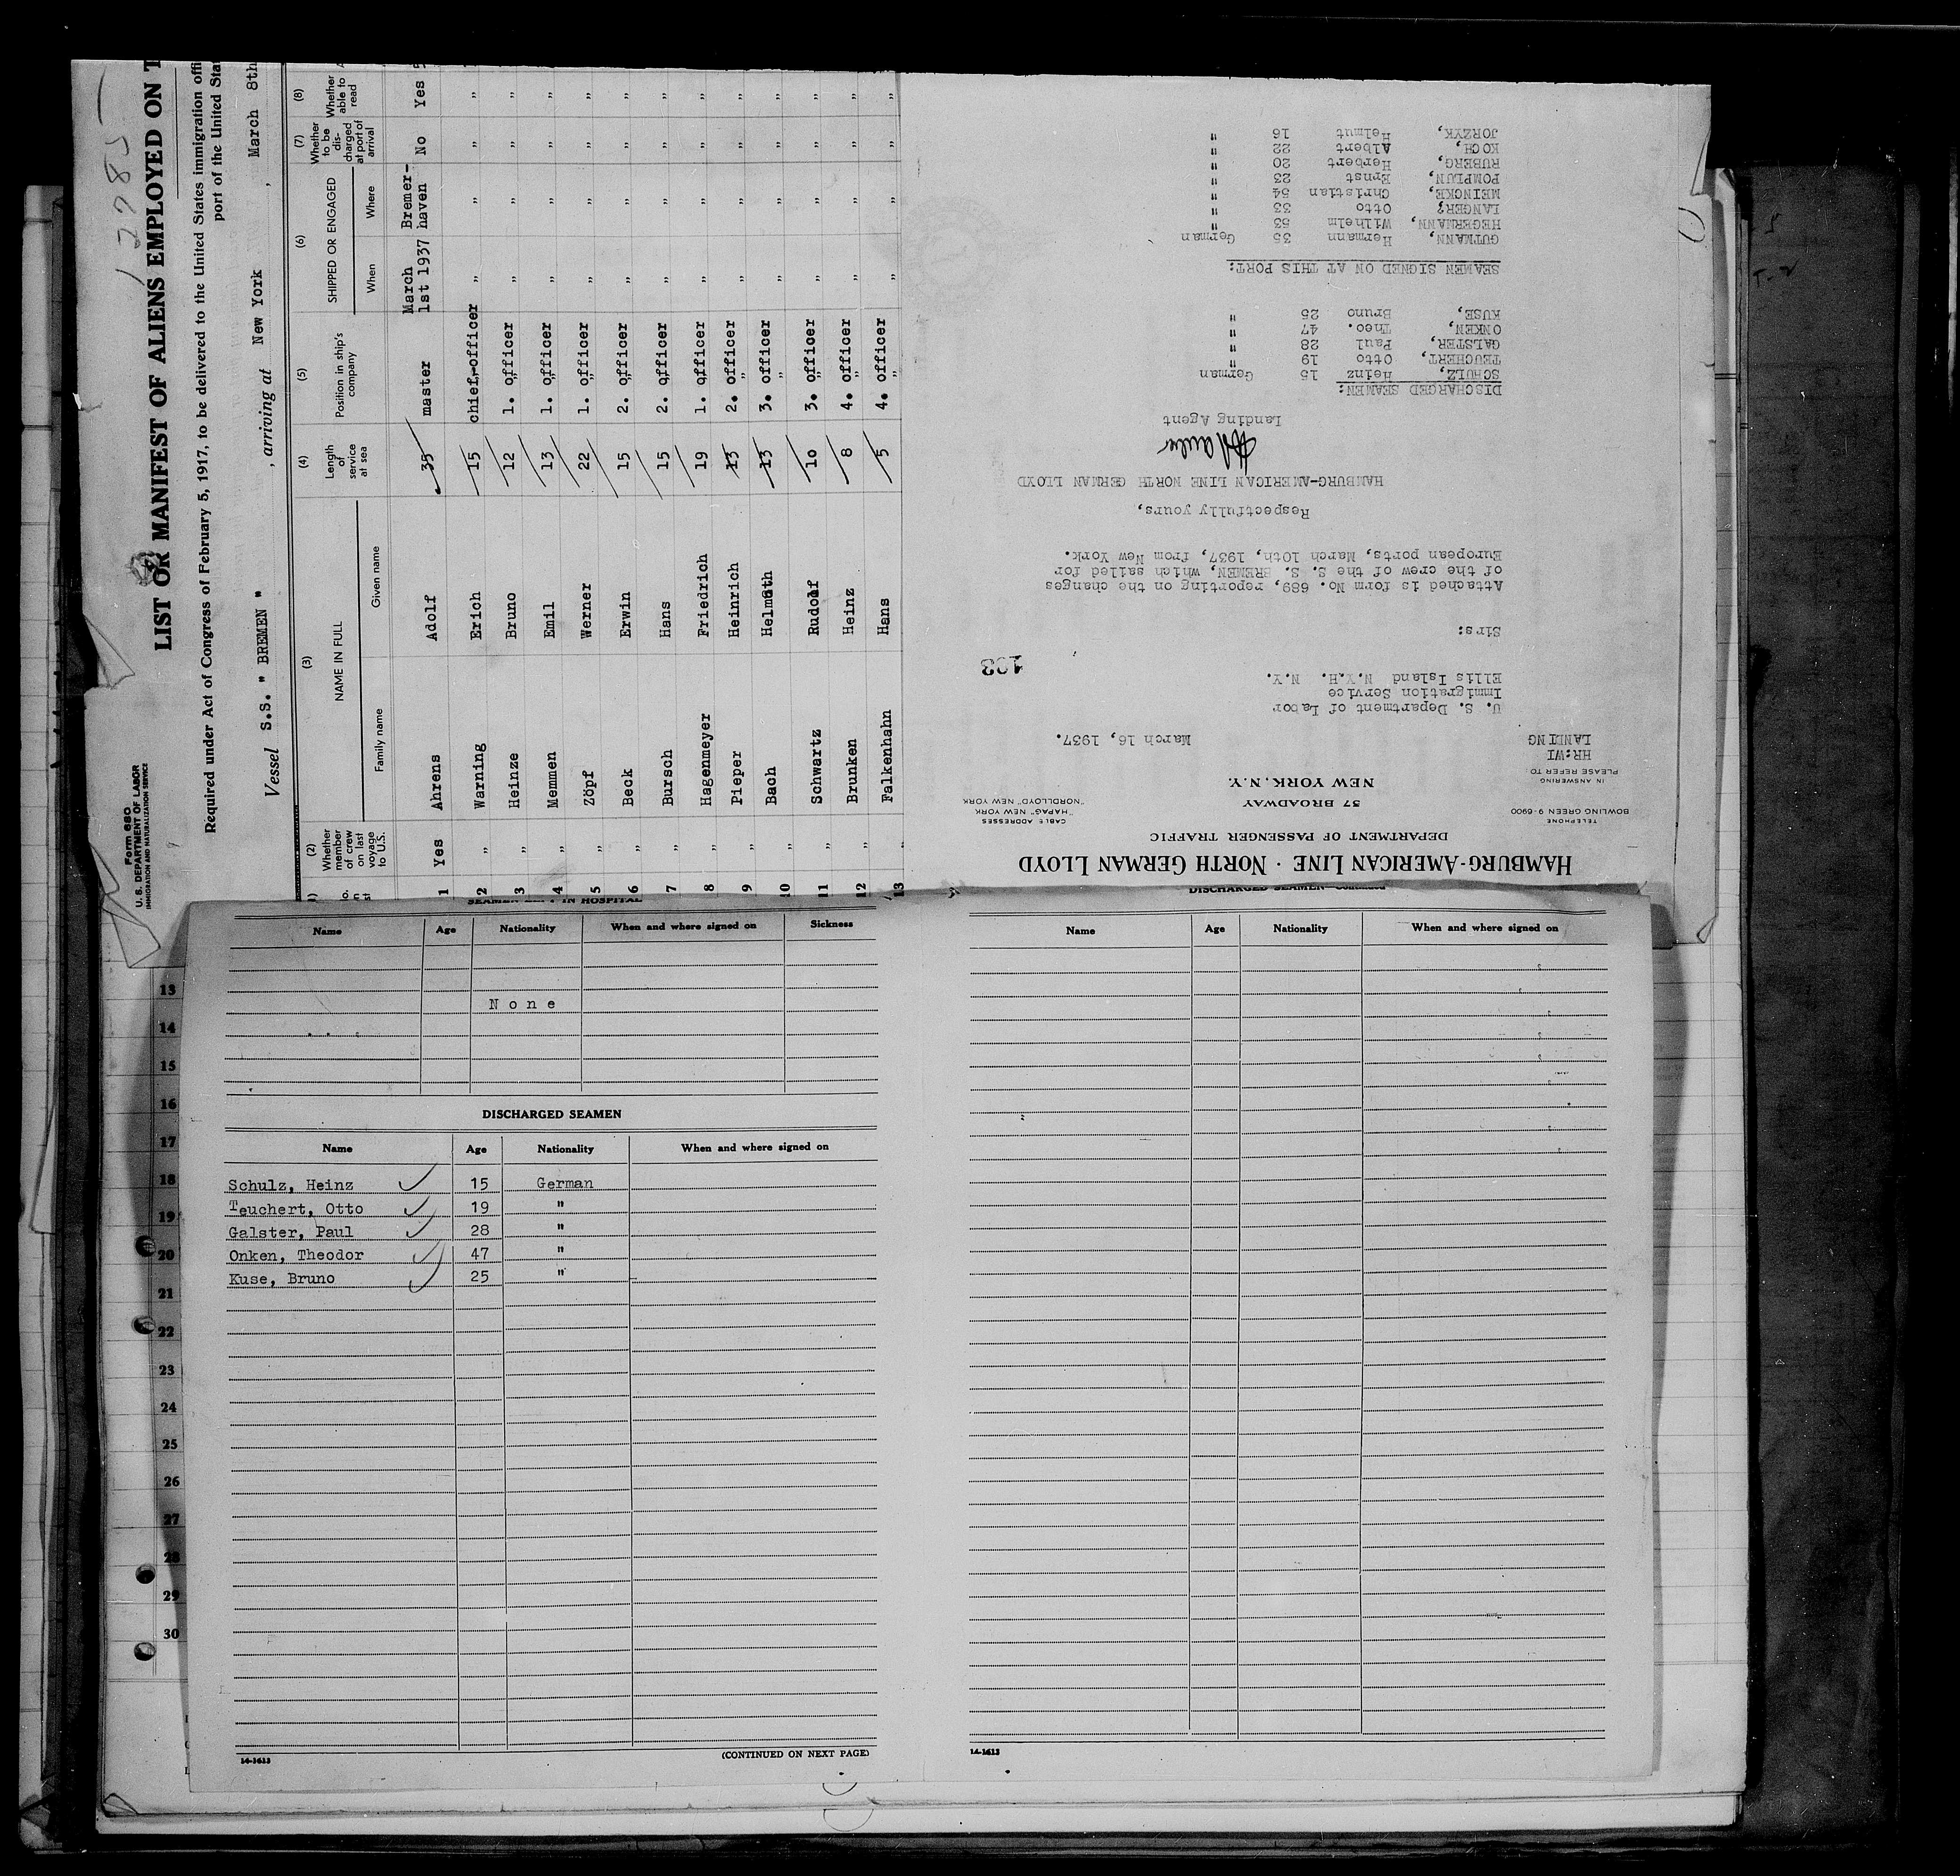 Form 680
U. S. DEPARTMENT OF LABOR
IMMIGRATION AND NATURALIZATION SERVICE
LIST OR MANIFEST OF ALIENS EMPLOYED ON T
Required under Act of Congress of February 5, 1917, to be delivered to the United States immigration offi
port of the United Stat
Vessel S.S. " BREMEN " , arriving at New York , March 8th
(2) Whether member of crew on last voyage to U.S. (3) NAME IN FULL Family name Given name (4) Length of service at sea (5) Position in ship's company (6) SHIPPED OR ENGAGED When Where (7) Whether to be discharged at port of arrival (8) Whether able to read
1 Yes Ahrens Adolf 35 master March 1st 1937 Bremerhaven No Yes
2 " Warning Erich 15 chief-officer " " " "
3 " Heinze Bruno 12 1. officer " " " "
4 " Memmen Emil 13 1. officer " " " "
5 " Zöpf Werner 22 1. officer " " " "
6 " Beck Erwin 15 2. officer " " " "
7 " Bursch Hans 15 2. officer " " " "
8 " Hagenmeyer Friedrich 19 1. officer " " " "
9 " Pieper Heinrich 13 2. officer " " " "
10 " Bach Helmuth 13 3. officer " " " "
11 " Schwartz Rudolf 10 3. officer " " " "
12 " Brunken Heinz 8 4. officer " " " "
13 " Falkenhahn Hans 5 4. officer " " " "
HAMBURG-AMERICAN LINE · NORTH GERMAN LLOYD
DEPARTMENT OF PASSENGER TRAFFIC
57 BROADWAY
NEW YORK, N.Y.
TELEPHONE
BOWLING GREEN 9-6900
CABLE ADDRESSES
"HAPAG" NEW YORK
"NORDLLOYD" NEW YORK
IN ANSWERING
PLEASE REFER TO
HR:WI
LANDING
March 16, 1937.
U. S. Department of Labor
Immigration Service
Ellis Island N.Y.H. N.Y.
193
Sirs:
Attached is form No. 689, reporting on the changes
of the crew of the S. S. BREMEN, which sailed for
European ports, March 10th, 1937, from New York.
Respectfully yours,
HAMBURG-AMERICAN LINE NORTH GERMAN LLOYD
Landing Agent
DISCHARGED SEAMEN:
SCHULZ, Heinz 15 German
TEUCHERT, Otto 19 "
GALSTER, Paul 28 "
ONKEN, Theo. 47 "
KUSE, Bruno 25 "
SEAMEN SIGNED ON AT THIS PORT:
GUTMANN, Hermann 35 German
HEGERMANN, Wilhelm 53 "
LANGER, Otto 33 "
MEINCKE, Christian 54 "
POMPLUN, Ernst 23 "
RUBERG, Herbert 20 "
KOCH, Albert 22 "
JORZYK, Helmut 16 "
SEAMEN LEFT IN HOSPITAL
Name Age Nationality When and where signed on Sickness
None
DISCHARGED SEAMEN
Name Age Nationality When and where signed on
Schulz, Heinz 15 German
Teuchert, Otto 19 "
Galster, Paul 28 "
Onken, Theodor 47 "
Kuse, Bruno 25 "
14-1613
(CONTINUED ON NEXT PAGE)
DISCHARGED SEAMEN—Continued
Name Age Nationality When and where signed on
14-1613
13
14
15
16
17
18
19
20
21
22
23
24
25
26
27
28
29
30